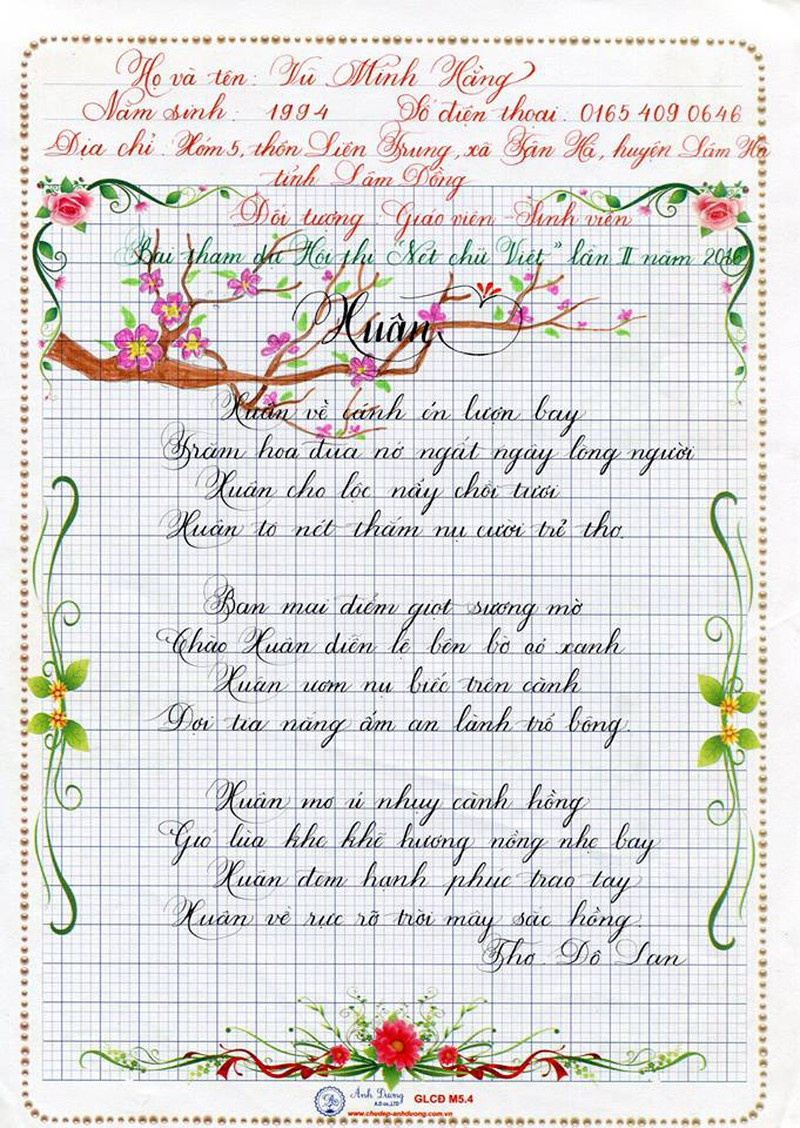 Họ và tên: Vũ Minh Hằng
Năm sinh: 1994 Số điện thoại: 0165 409 0646
Địa chỉ: Xóm 5, thôn Liên Trung, xã Tân Hà, huyện Lâm Hà
tỉnh Lâm Đồng
Đối tượng: Giáo viên - Sinh viên
Bài tham dự Hội thi "Nét chữ Việt" lần II năm 2016
Xuân
Xuân về cánh én lượn bay
Trăm hoa đua nở ngất ngây lòng người
Xuân cho lộc nảy chồi tươi
Xuân tô nét thắm nụ cười trẻ thơ.
Ban mai điểm giọt sương mờ
Chào Xuân diễn lệ bên bờ cỏ xanh
Xuân ươm nụ biếc trên cành
Đợi tia nắng ấm an lành trổ bông.
Xuân mơ ủ nhụy cành hồng
Gió lùa khe khẽ hương nồng nhẹ bay
Xuân đem hạnh phúc trao tay
Xuân về rực rỡ trời mây sắc hồng.
Thơ: Đỗ Lan
Ánh Dương
K.D co.,LTD
GLCĐ M5.4
www.chudep-anhduong.com.vn